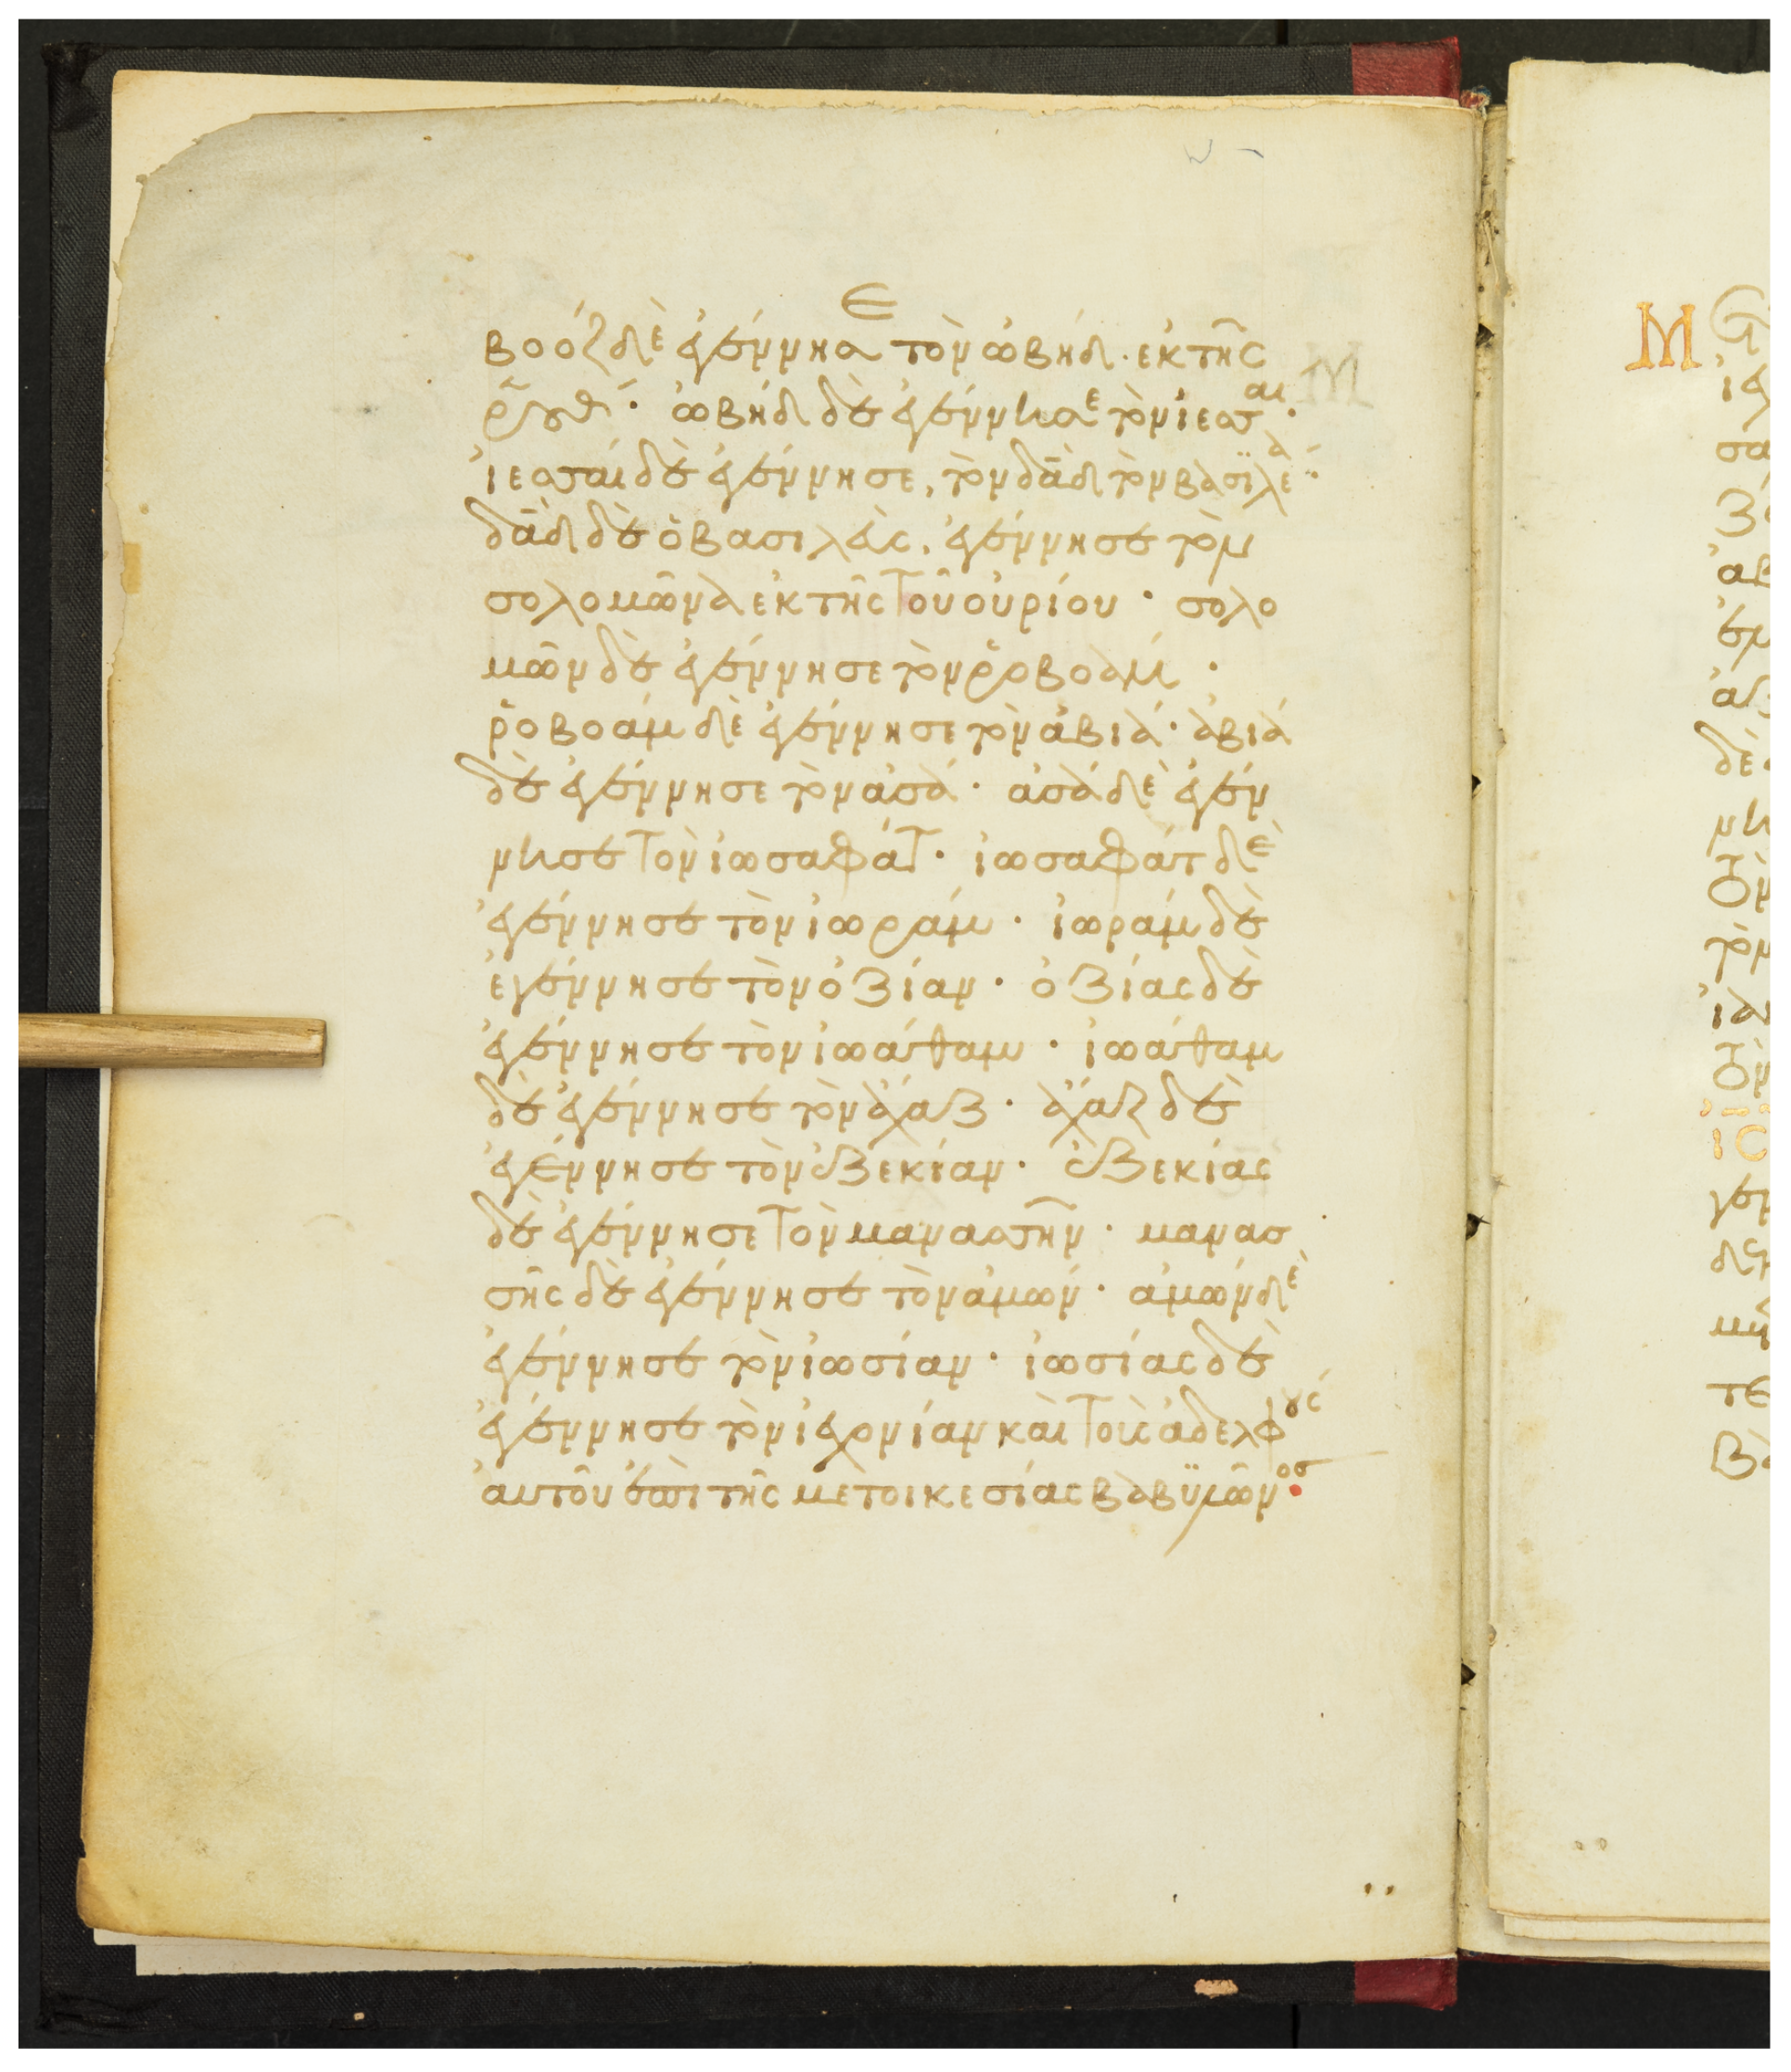 βοὸζ δὲ ἐγέννησε τὸν ὠβήδ· ἐκ τῆς
ῥούθ· ὠβὴδ δὲ ἐγέννησε τὸν ἰεσσαί·
ἰεσσαί δὲ ἐγέννησε, τὸν δᾱδ τὸν βασιλέα·
δᾱδ δὲ ὁ βασιλεὺς, ἐγέννησε τὸν
σολομῶνα ἐκ τῆς τοῦ οὐρίου· σολο
μῶν δὲ ἐγέννησε τὸν ῥοβοάμ·
ῥοβοάμ δὲ ἐγέννησε τὸν ἀβιά· ἀβιά
δὲ ἐγέννησε τὸν ἀσά· ἀσά δὲ ἐγέν
νησε τὸν ἰωσαφάτ· ἰωσαφάτ δὲ
ἐγέννησε τὸν ἰωράμ· ἰωράμ δὲ
ἐγέννησε τὸν ὀζίαν· ὀζίας δὲ
ἐγέννησε τὸν ἰωάθαμ· ἰωάθαμ
δὲ ἐγέννησε τὸν ἄχαζ· ἄχαζ δὲ
ἐγέννησε τὸν ἐζεκίαν· ἐζεκίας
δὲ ἐγέννησε τὸν μανασσῆν· μανασ
σῆς δὲ ἐγέννησε τὸν ἀμών· ἀμών δὲ
ἐγέννησε τὸν ἰωσίαν· ἰωσίας δὲ
ἐγέννησε τὸν ἰεχονίαν καὶ τοὺς ἀδελφούς
αὐτοῦ ἐπὶ τῆς μετοικεσίας βαβυλῶνος·
Μ